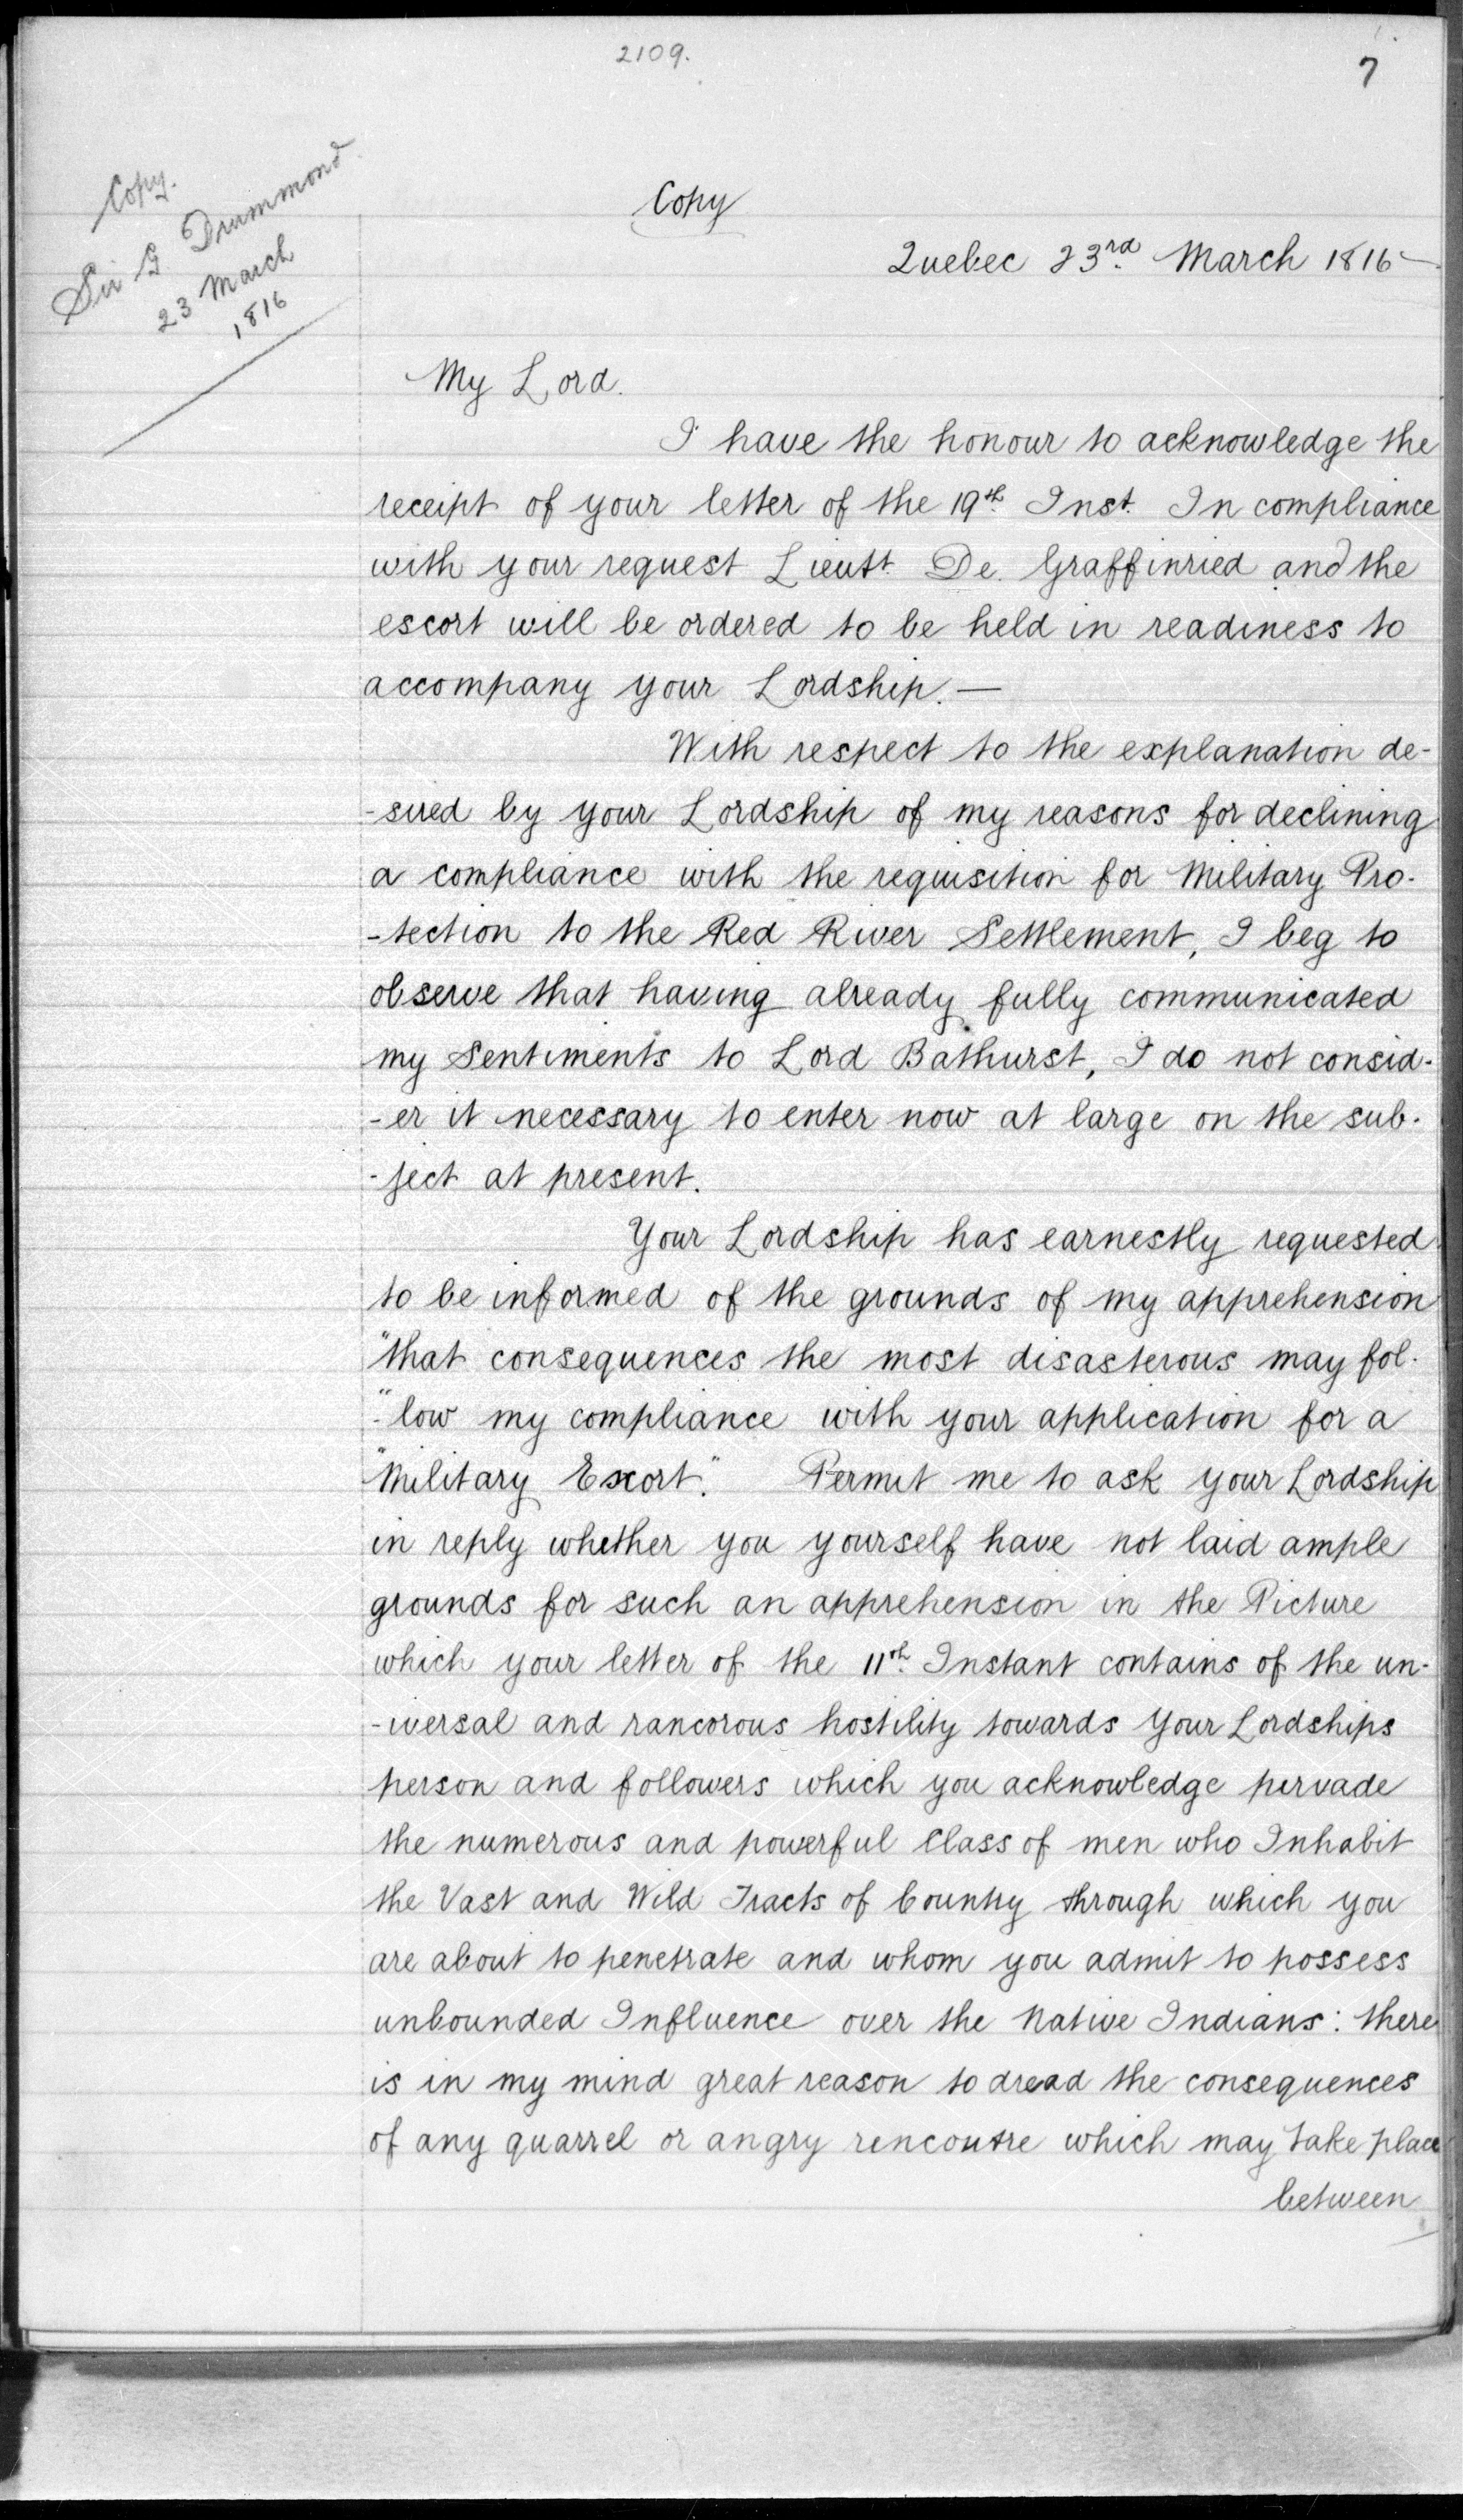 2109.
7
Copy.
Sir G Drummond
23 March
1816
Copy
Quebec 23rd. March 1816 -
My Lord.
I have the honour to acknowledge the
receipt of your letter of the 19th. Inst. In compliance
with your request Lieutt. De. Graffinried and the
escort will be ordered to be held in readiness to
accompany your Lordship. —
With respect to the explanation de-
-sired by your Lordship of my reasons for declining
a compliance with the requisition for Military Pro-
-tection to the Red River Settlement, I beg to
observe that having already fully communicated
my Sentiments to Lord Bathurst, I do not consid-
-er it necessary to enter now at large on the sub-
-ject at present.
Your Lordship has earnestly requested
to be informed of the grounds of my apprehension
"that consequences the most disasterous may fol-
-"low my compliance with your application for a
"Military Escort." Permit me to ask your Lordship
in reply whether you yourself have not laid ample
grounds for such an apprehension in the Picture
which your letter of the 11th. Instant contains of the un-
-iversal and rancorous hostility towards your Lordships
person and followers which you acknowledge pervade
the numerous and powerful Class of men who Inhabit
the Vast and Wild Tracts of Country through which you
are about to penetrate and whom you admit to possess
unbounded Influence over the Native Indians: there
is in my mind great reason to dread the consequences
of any quarrel or angry rencoutre which may take place
between